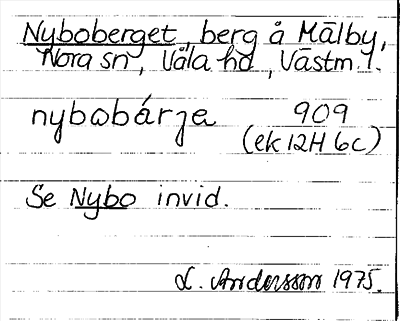 Nyboberget, berg å Mälby,
Nora sn, Våla hd, Västm. l.
nybobárja 909
(ek 12H 6c)
Se Nybo invid.
L. Andersson 1975.